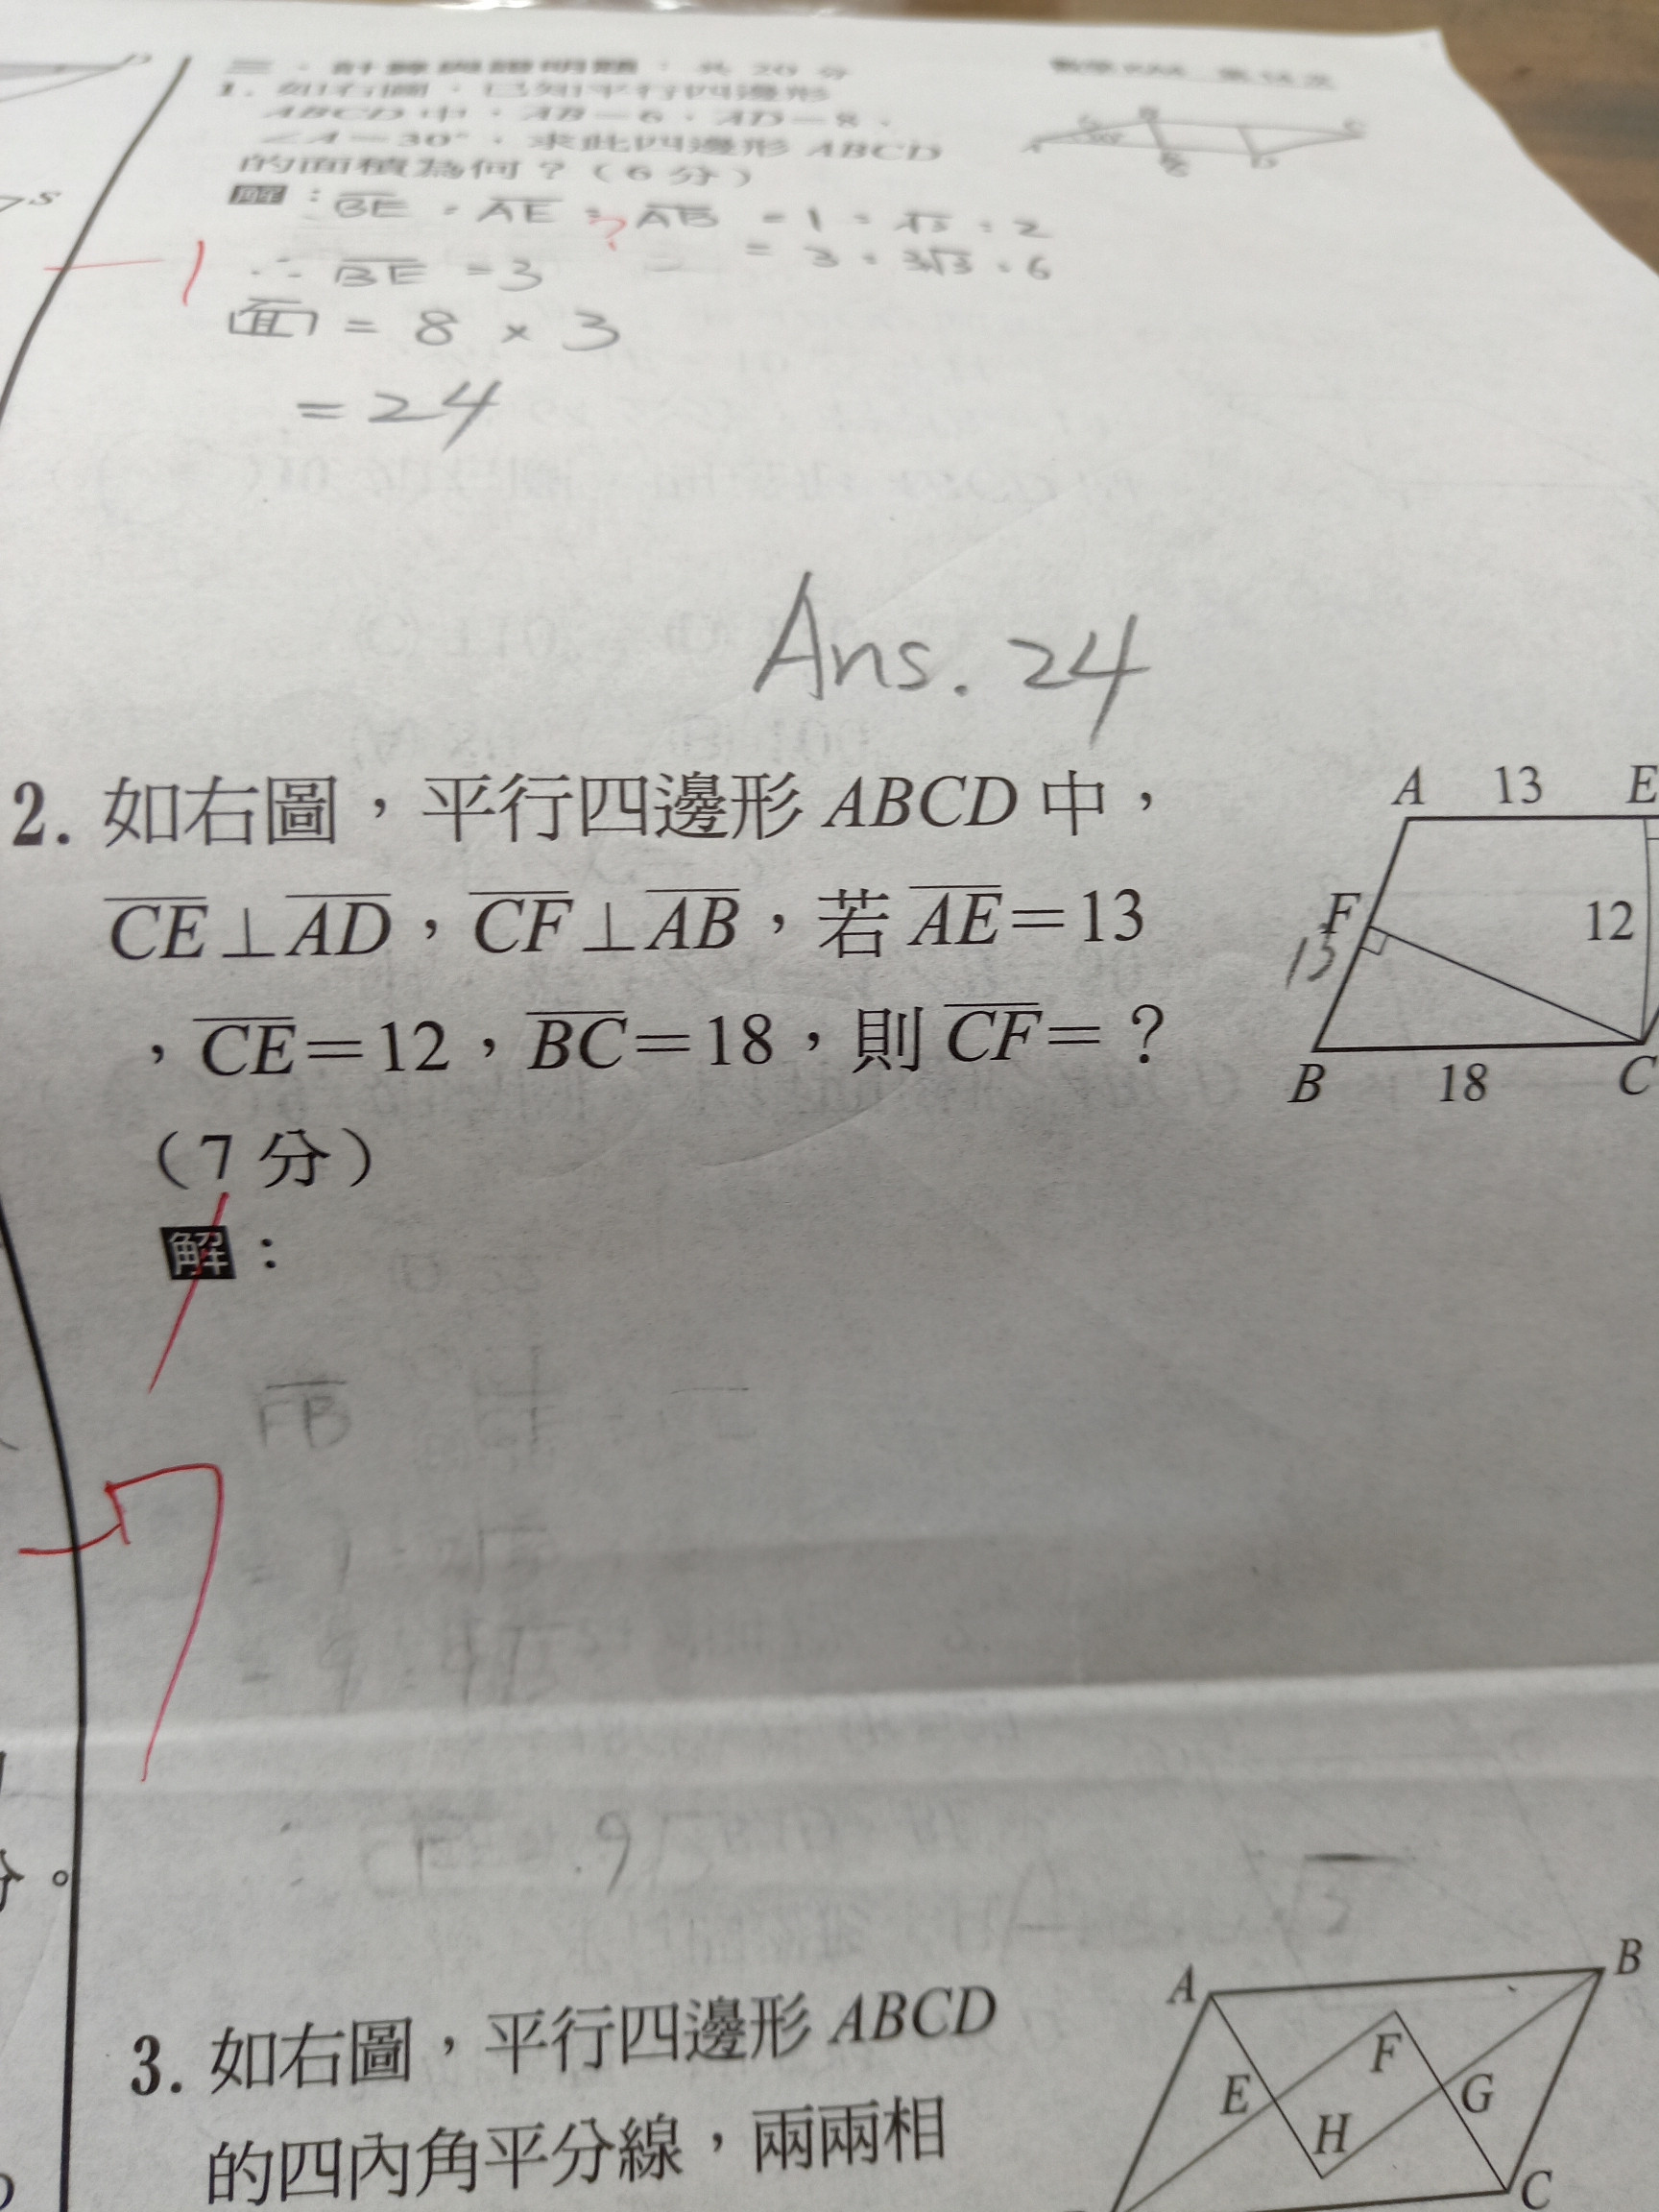 1. 如右圖，已知平行四邊形
ABCD 中，AB=6，AD=8，
∠A=30°，求此四邊形 ABCD
的面積為何？（6 分）
解：BE：AE：AB = 1：√3：2
?
= 3：3√3：6
∴ BE = 3
面 = 8 × 3
= 24
Ans. 24
2. 如右圖，平行四邊形 ABCD 中，
CE⊥AD，CF⊥AB，若 AE=13
，CE=12，BC=18，則 CF=？
（7 分）
解：
A 13 E
F 12
13
B 18 C
FB
3. 如右圖，平行四邊形 ABCD
的四內角平分線，兩兩相
A B
F
E G
H
C
分。
S